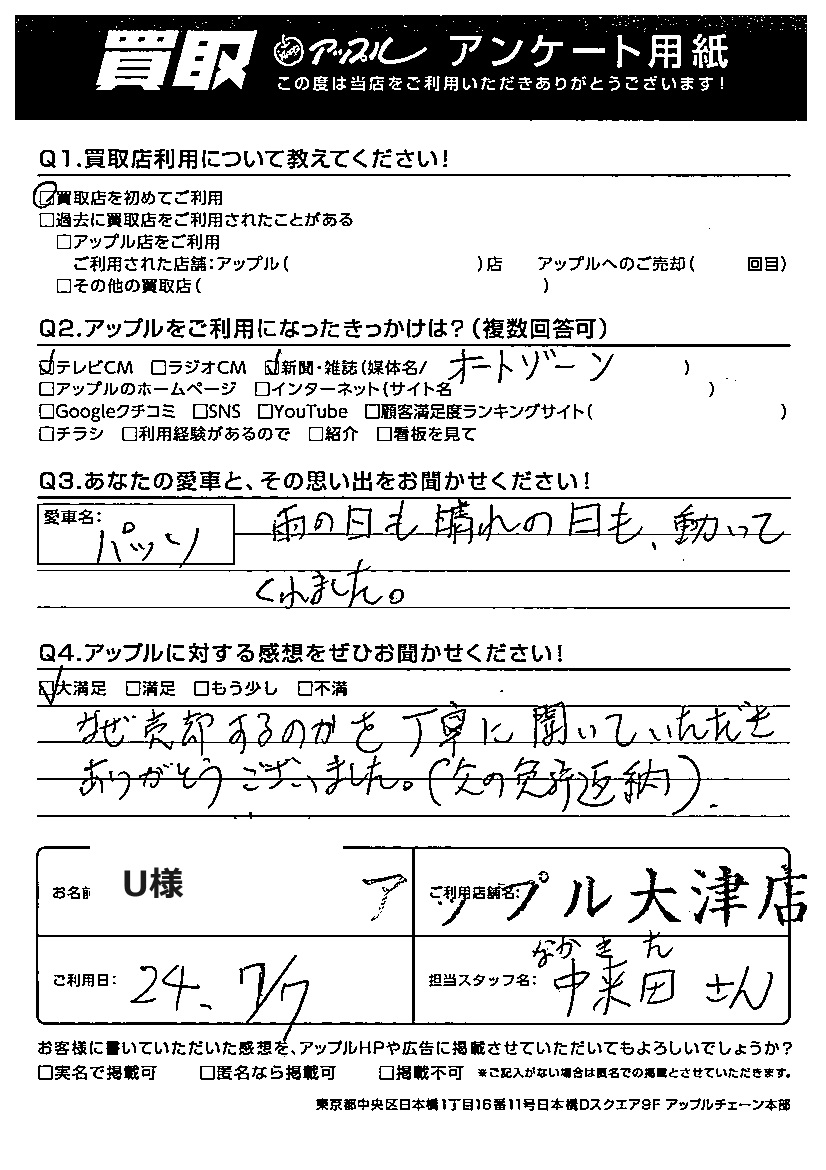 買取 アップル アンケート用紙
この度は当店をご利用いただきありがとうございます!
Q1.買取店利用について教えてください!
☑買取店を初めてご利用
□過去に買取店をご利用されたことがある
□アップル店をご利用
ご利用された店舗:アップル( )店 アップルへのご売却( 回目)
□その他の買取店( )
Q2.アップルをご利用になったきっかけは?(複数回答可)
☑テレビCM □ラジオCM ☑新聞・雑誌(媒体名/ オートゾーン )
□アップルのホームページ □インターネット(サイト名 )
□Googleクチコミ □SNS □YouTube □顧客満足度ランキングサイト( )
□チラシ □利用経験があるので □紹介 □看板を見て
Q3.あなたの愛車と、その思い出をお聞かせください!
愛車名: パッソ 雨の日も晴れの日も、動いて
くれました。
Q4.アップルに対する感想をぜひお聞かせください!
☑大満足 □満足 □もう少し □不満
なぜ売却するのかを丁寧に聞いていただき
ありがとうございました。(父の免許返納).
お名前 U様 ご利用店舗名: アップル大津店
なかきた
ご利用日: 24. 7/7 担当スタッフ名: 中来田 さん
お客様に書いていただいた感想を、アップルHPや広告に掲載させていただいてもよろしいでしょうか?
□実名で掲載可 □匿名なら掲載可 □掲載不可 ※ご記入がない場合は匿名での掲載とさせていただきます。
東京都中央区日本橋1丁目16番11号日本橋Dスクエア9F アップルチェーン本部